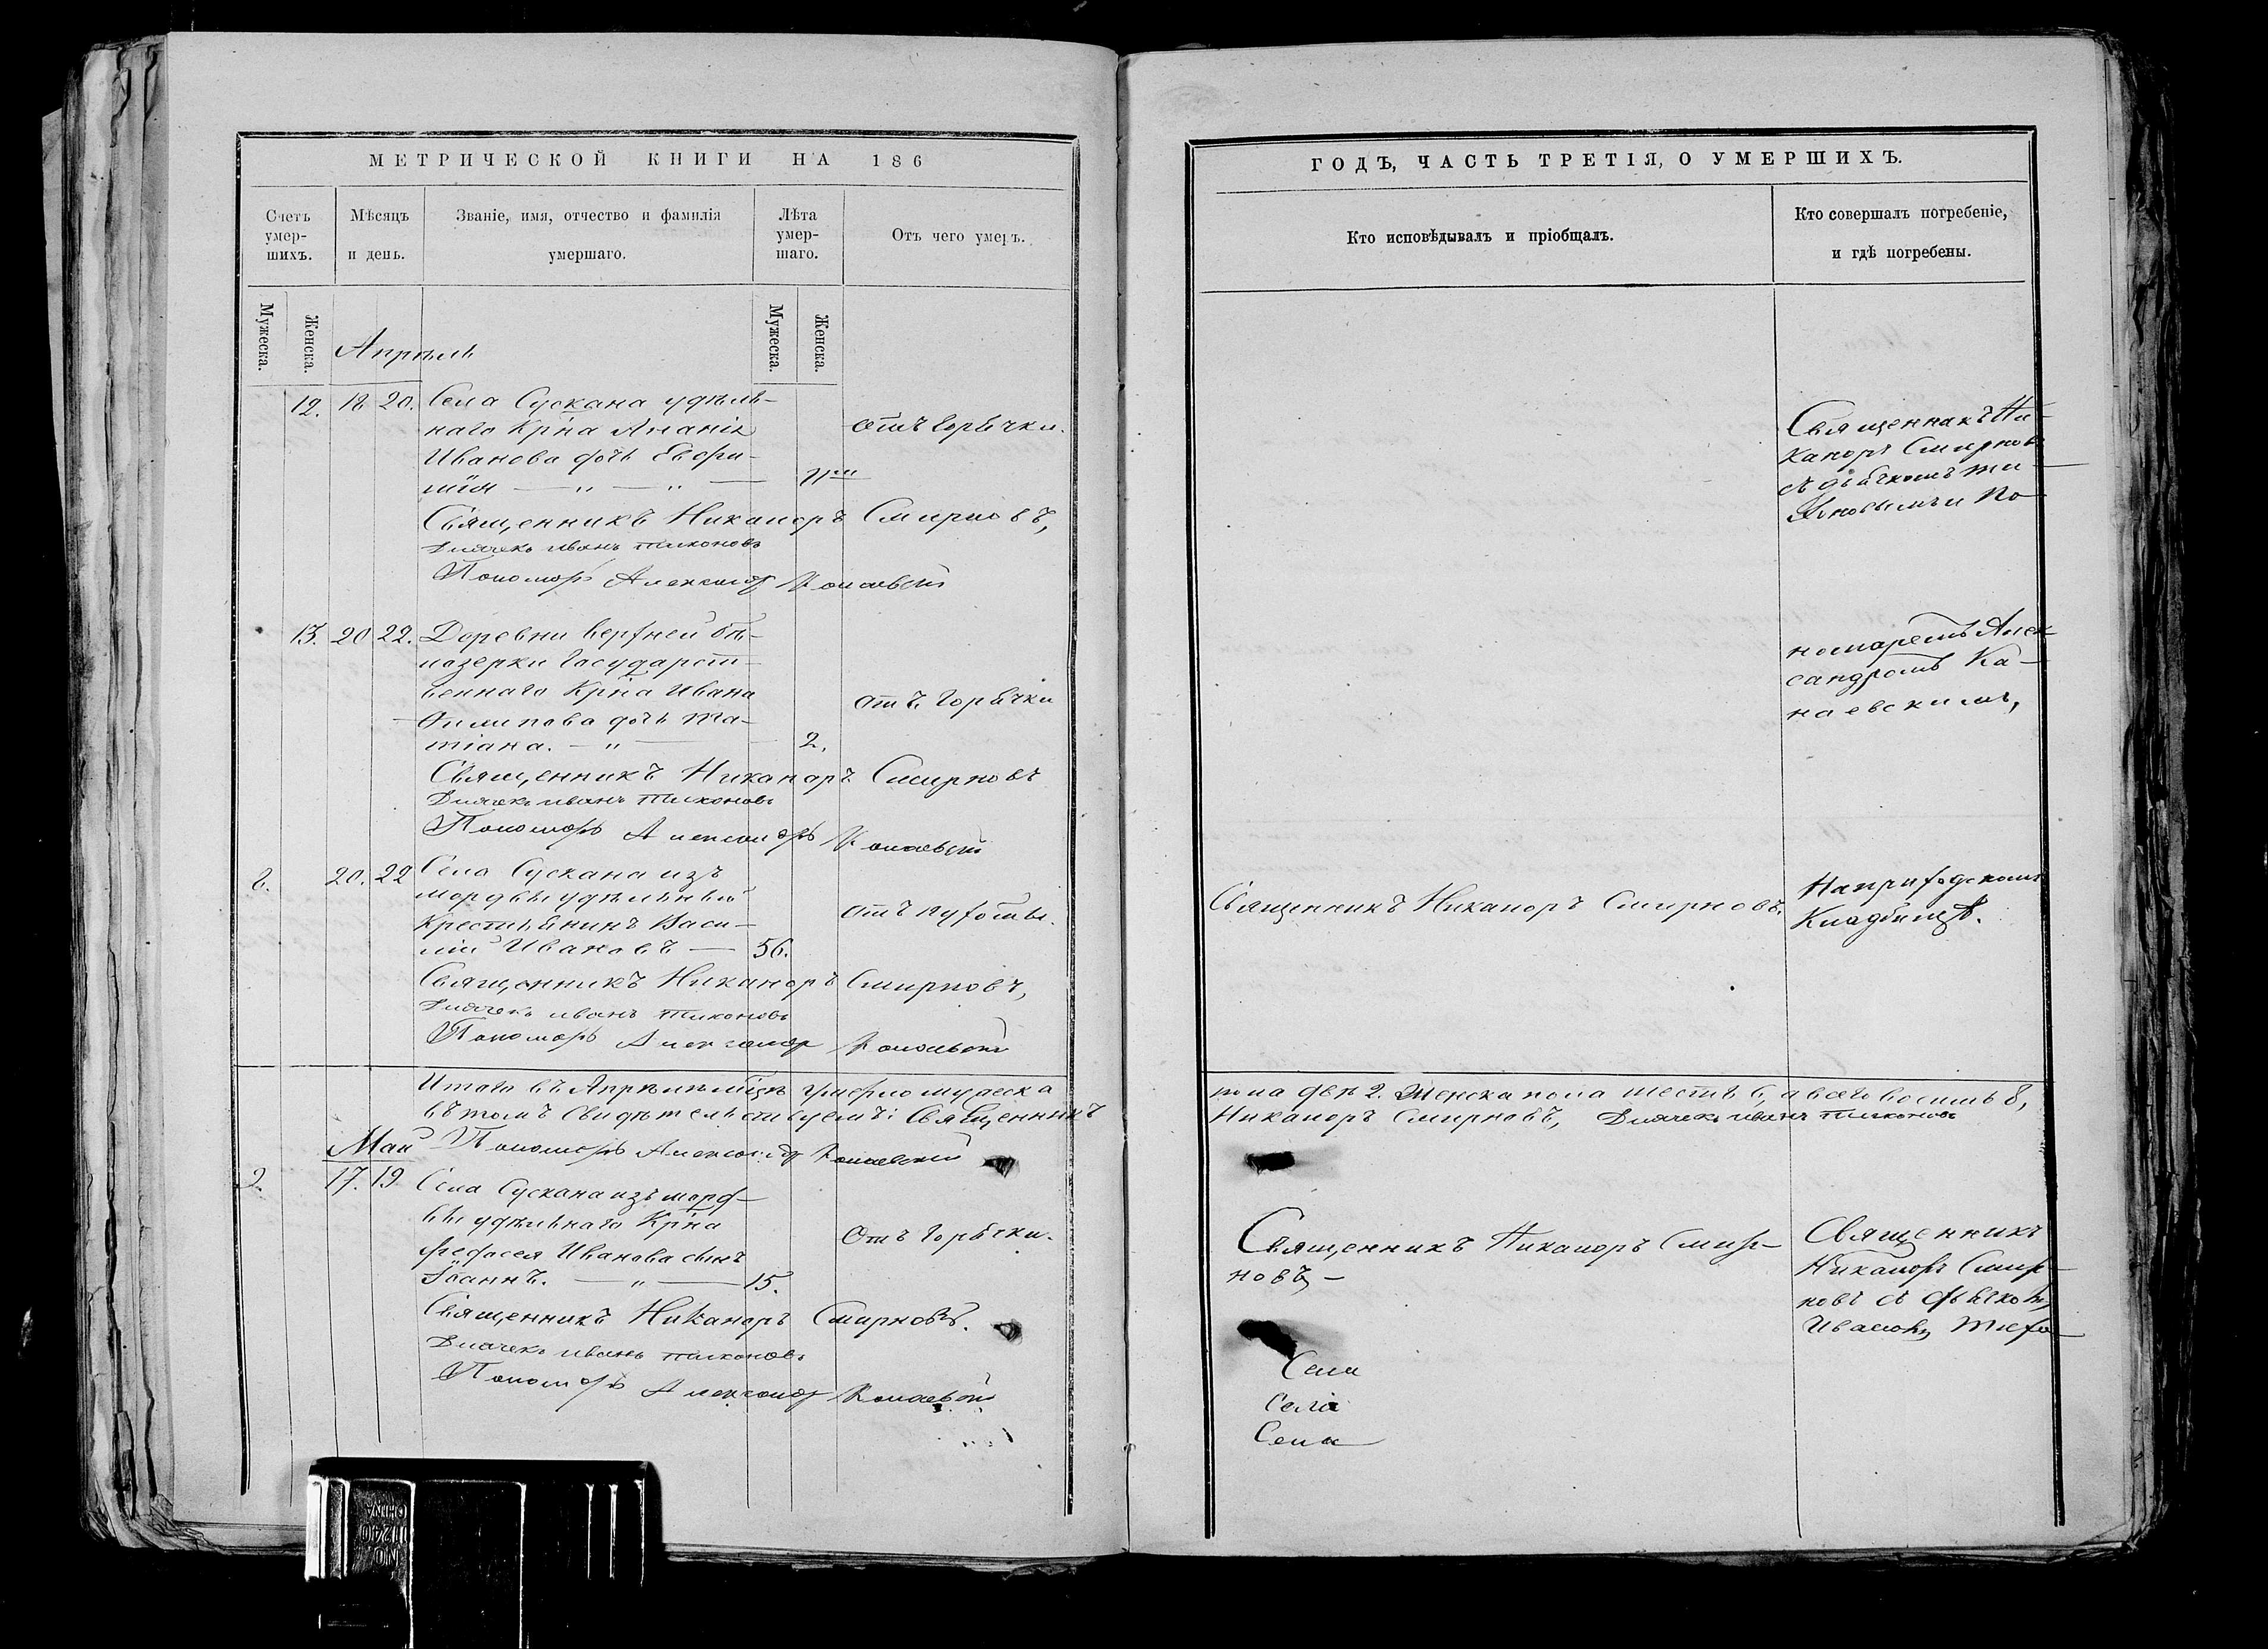 МЕТРИЧЕСКОЙ КНИГИ НА 186
Счетъ умер-шихъ.
Мѣсяцъ и день.
Званіе, имя, отчество и фамилія умершаго.
Лѣта умер-шаго.
Отъ чего умеръ.
Мужеска.
Женска.
Мужеска.
Женска.
Апрѣль
12. 18 20. Села Сускана удѣль-
наго Крна Ананіи
Иванова дочь Евфи-
мія
отъ горячки.
Священникъ Никаноръ Смирновъ,
Дьячекъ Иванъ Тихоновъ
Пономарь Александръ Канаевскій
13. 20 22. Деревни Верхней Бѣ-
лозерки Государст-
веннаго Крна Ивана
Филипова дочь Та-
тіана. 2.
отъ горячки
Священникъ Никаноръ Смирновъ
Дьячекъ Иванъ Тихоновъ
Пономарь Александръ Канаевскій
20. 22 Села Сускана изъ
мордвы удѣльный
Крестьянинъ Васи-
лій Ивановъ 56.
отъ чухоты.
Священникъ Никаноръ Смирновъ,
Дьячекъ Иванъ Тихоновъ
Пономарь Александръ Канаевскій
Итого въ Апрѣлѣ мцѣ умерло мужеска
въ томъ свидѣтельствуемъ: Священникъ
Пономарь Александръ Канаевскій
Май
17. 19 Села Сускана изъ морд-
вы удѣльнаго Крна
Федосея Иванова сынъ
Іоаннъ. 15.
Отъ горячки.
Священникъ Никаноръ Смирновъ.
Дьячекъ Иванъ Тихоновъ
Пономарь Александръ Канаевскій
ГОДЪ, ЧАСТЬ ТРЕТІЯ, О УМЕРШИХЪ.
Кто исповѣдывалъ и пріобщалъ.
Кто совершалъ погребеніе,
и гдѣ погребены.
Священникъ Ни-
каноръ Смирновъ
съ дьячкомъ Ти-
хоновымъ и По-
номаремъ Алек-
сандромъ Ка-
наевскимъ,
Священникъ Никаноръ Смирновъ.
На приходскомъ
Кладбищѣ.
пола два 2. Женска пола шесть 6, а всего восимь 8,
Никаноръ Смирновъ, Дьячекъ Иванъ Тихоновъ
Священникъ Никаноръ Смир-
новъ
Священникъ
Никаноръ Смир-
новъ съ дьячкомъ
Иваномъ Тихо-
Села
Села
Села